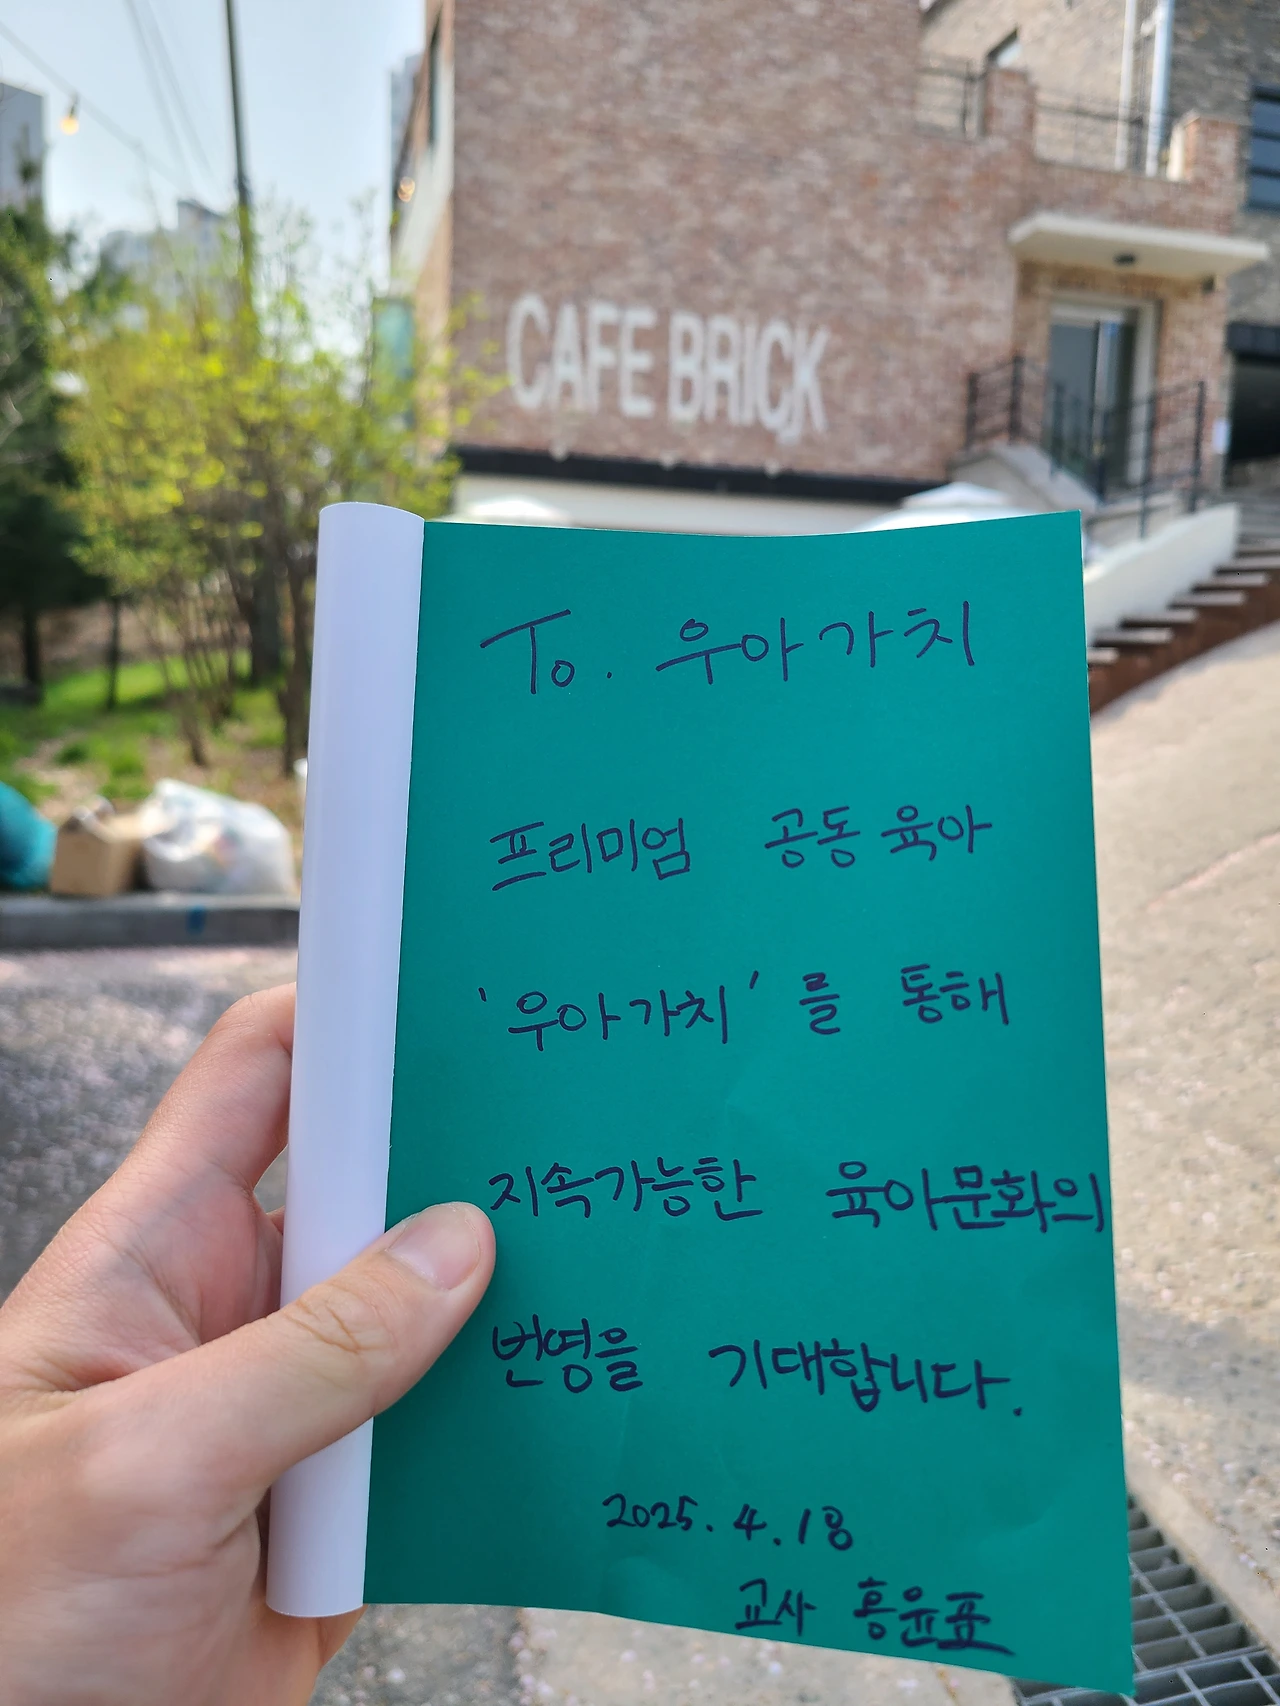 CAFE BRICK
To. 우아가치
프리미엄 공동육아
'우아가치'를 통해
지속가능한 육아문화의
번영을 기대합니다.
2025. 4. 18
교사 홍윤표